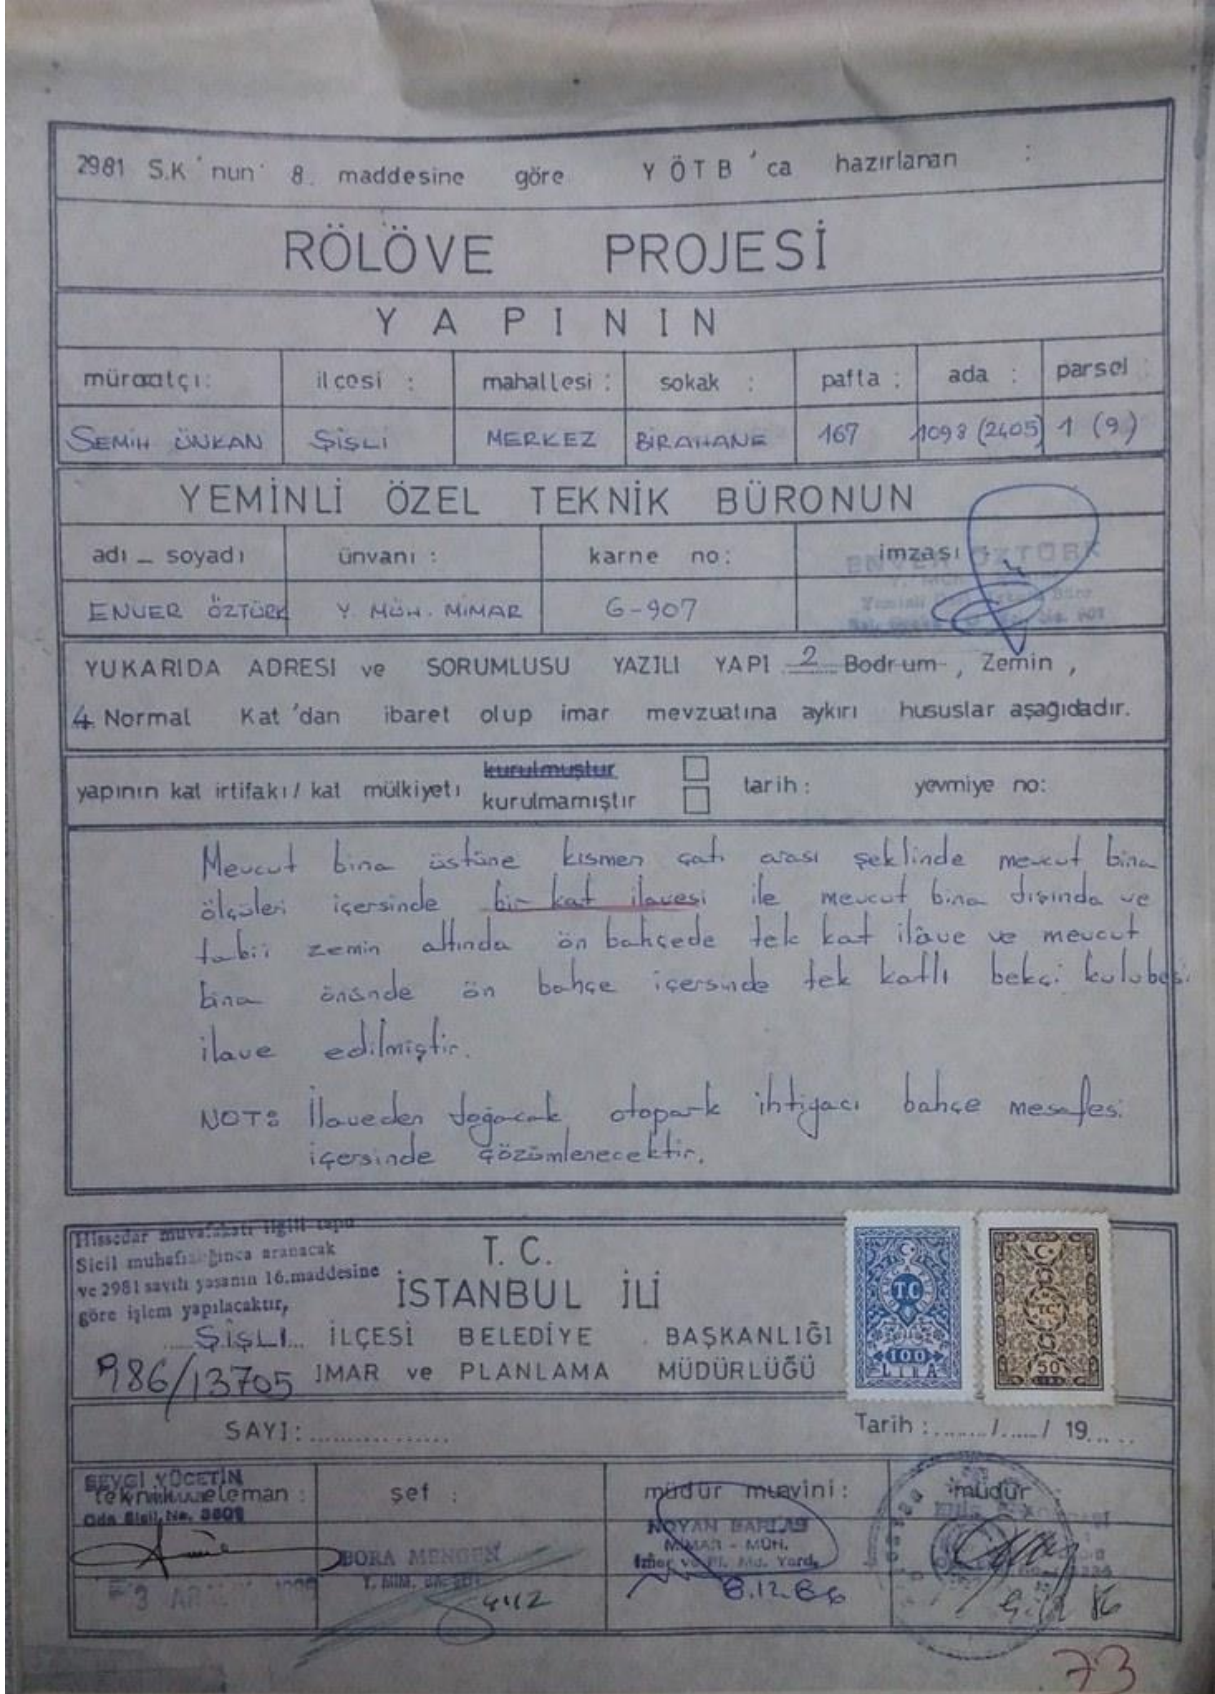 2981 S.K'nun 8. maddesine göre YÖTB'ca hazırlanan :
RÖLÖVE PROJESİ
YAPININ
müraatçı: ilçesi : mahallesi : sokak : pafta : ada : parsel :
SEMİH ÜNKAN ŞİŞLİ MERKEZ BİRAHANE 167 1093 (2405) 1 (9)
YEMİNLİ ÖZEL TEKNİK BÜRONUN
adı _ soyadı ünvanı : karne no: imzası
ENVER ÖZTÜRK
ENVER ÖZTÜRK Y. MÜH. MİMAR G-907
YUKARIDA ADRESİ ve SORUMLUSU YAZILI YAPI 2 Bodrum , Zemin ,
4 Normal Kat'dan ibaret olup imar mevzuatına aykırı hususlar aşağıdadır.
yapının kat irtifakı / kat mülkiyeti kurulmuştur tarih : yevmiye no:
kurulmamıştır
Mevcut bina üstüne kısmen çatı arası şeklinde mevcut bina
ölçüleri içersinde bir kat ilavesi ile mevcut bina dışında ve
tabii zemin altında ön bahçede tek kat ilâve ve mevcut
bina önünde ön bahçe içersinde tek katlı bekçi kulubesi
ilave edilmiştir.
NOT: İlaveden doğacak otopark ihtiyacı bahçe mesafesi
içersinde çözümlenecektir.
Hissedar muvafakatı ilgili tapu
Sicil muhafızlığınca aranacak
ve 2981 sayılı yasanın 16.maddesine
göre işlem yapılacaktır,
T. C.
İSTANBUL İLİ
ŞİŞLİ İLÇESİ BELEDİYE BAŞKANLIĞI
986/13705 IMAR ve PLANLAMA MÜDÜRLÜĞÜ
TC
100
LIRA
TC
50
SAYI:.................. Tarih :......./...../ 19.....
SEVGİ YÜCETİN
teknik eleman : şef : müdür muavini : müdür
Oda Sicil. No.
NOYAN BARLAS
MİMAR - MÜH.
İmar ve Pl. Md. Yard.
BORA MENGEN
8.12.86
73